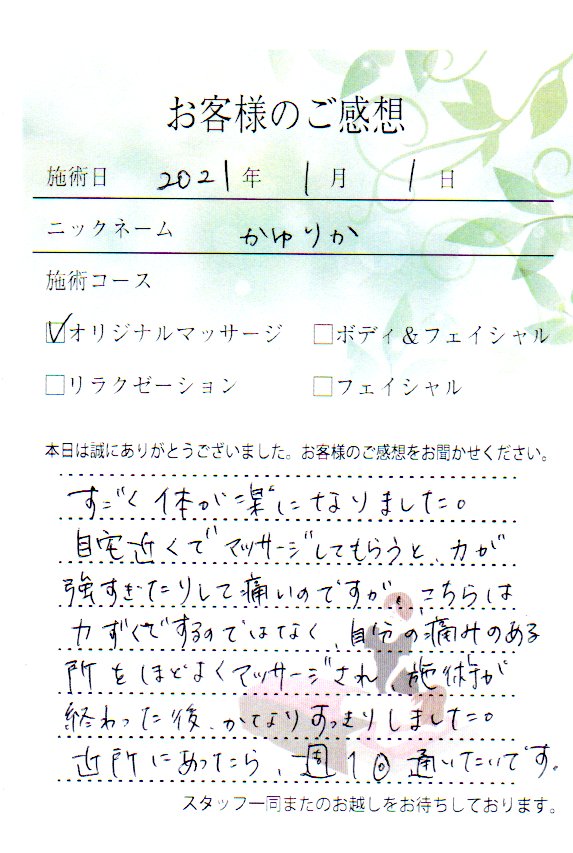 お客様のご感想
施術日 2021年 1月 1日
ニックネーム かゆりか
施術コース
オリジナルマッサージ ボディ&フェイシャル
リラクゼーション フェイシャル
本日は誠にありがとうございました。お客様のご感想をお聞かせください。
すごく体が楽になりました。
自宅近くでマッサージしてもらうと、力が
強すぎたりして痛いのですが、こちらは
力ずくでするのではなく、自分の痛みのある
所をほどよくマッサージされ、施術が
終わった後、かなりすっきりしました。
近所にあったら、週1回通いたいです。
スタッフ一同またのお越しをお待ちしております。